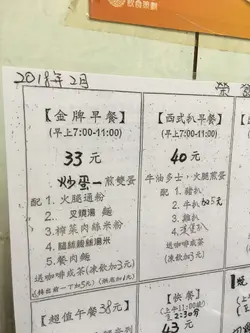 飲食
2018年2月
【金牌早餐】
(早上7:00-11:00)
33元
炒蛋一煎雙蛋
配 1. 火腿通粉
2. 叉燒湯麵
3. 榨菜肉絲米粉
4. 雞絲湯米
5. 餐肉麵
送咖啡或茶(凍飲加3元)
【西式扒早餐】
(早上7:00-11:00)
40元
牛油多士,火腿煎蛋
配 1. 豬扒
2. 牛扒加5元
3. 雞扒
送咖啡或茶
(凍飲加3元)
【超值午餐38元】
【快餐】
2:30分
43元